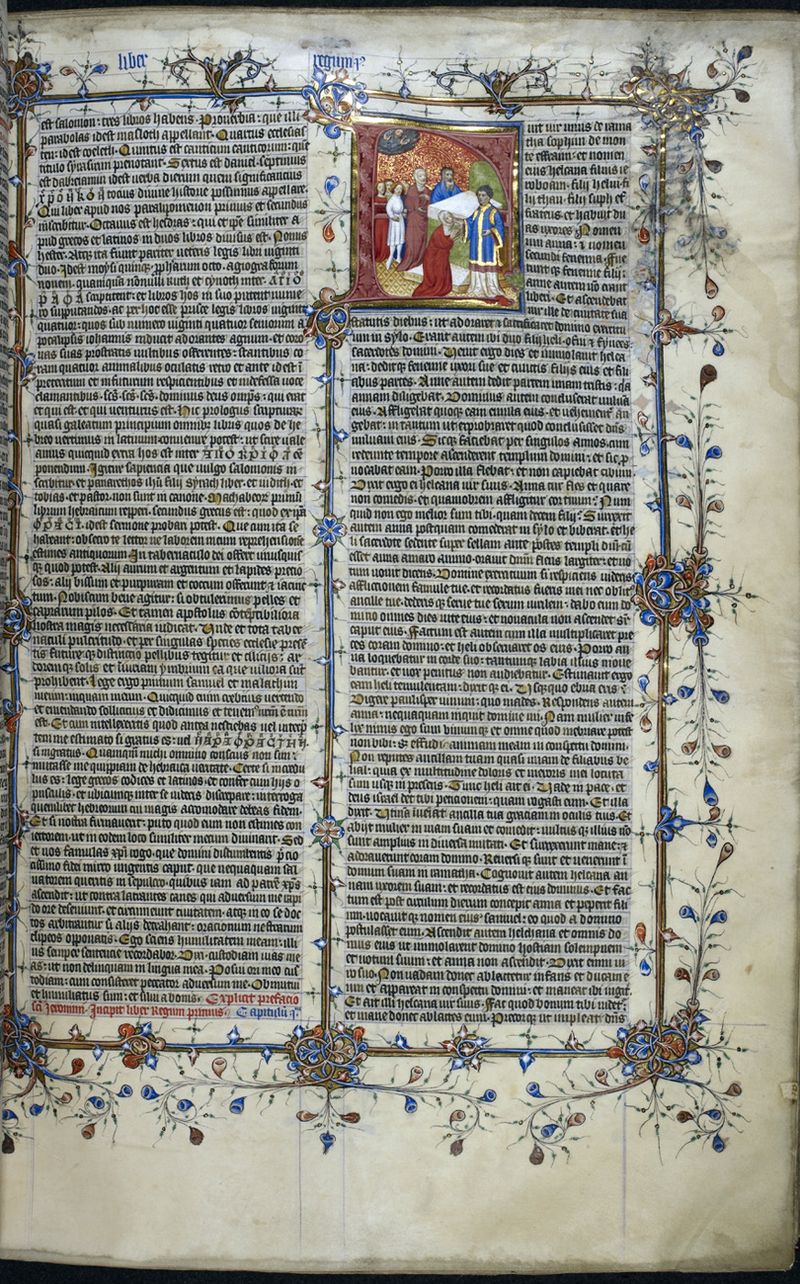 liber
regum p
est salomon : tres libros habens . Proverbia : que illi
parabolas id est masloth appellant . Quartus ecclesias
ten : id est coeleth . Quintus est canticum canticorum : que
titulo syrasirim prenotant . Sextus est daniel . septimus
est dabreiamin id est verba dierum quem significantius
totius divine historie possumus appellare .
Qui liber apud nos paralipomenon primus et secundus
inscribitur . Octavus est hesdras : qui et ipse similiter a
pud grecos et latinos in duos libros divisus est . Nonus
hester . Atque ita fiunt pariter veteris legis libri viginti
duo . Id est moysi quinque . prophetarum octo . agiographorum
novem . quamquam nonnulli ruth et cynoth inter
scriptitent : et libros hos in suo putent nume
ro supputandos . ac per hoc esse prisce legis libros viginti
quatuor : quos sub numero viginti quatuor seniorum a
pocalipsis iohannis inducit adorantes agnum . et coro
nas suas prostratis vultibus offerentes : stantibus co
ram quatuor animalibus oculatis retro et ante id est in
preteritum et in futurum respicientibus et indefessa voce
clamantibus . scs . scs . scs . dominus deus omps : qui erat
et qui est et qui venturus est . Hic prologus scripturarum
quasi galeatum principium omnibus libris quos de he
breo vertimus in latinum convenire potest : ut scire vale
amus quicquid extra hos est inter esse
ponendum . Igitur sapiencia que vulgo salomonis in
scribitur et panarethos ihu filii syrach liber . et iudith . et
tobias . et pastor . non sunt in canone . Machabeorum primum
librum hebraicum repperi . secundus grecus est : quod ex ipsa
id est sermone probari potest . Que cum ita se
habeant : obsecro te lector ne laborem meum reprehensionem
estimes antiquorum . In tabernaculo dei offert unusquisque
quod potest . Alii aurum et argentum et lapides precio
sos : alii bissum et purpuram et coccum offerunt et iacinc
tum . Nobiscum bene agitur : si obtulerimus pelles et
caprarum pilos . Et tamen apostolus contemptibiliora
nostra magis necessaria iudicat . Unde et tota taber
naculi pulcritudo . et per singulas species ecclesie presen
tis future que distinctio pellibus tegitur et ciliciis : ar
dorem que solis et iniuriam ymbrium ea que viliora sunt
prohibent . Lege ergo primum samuel et malachim
meum : inquam meum . Quicquid enim crebrius vertendo
et emendando sollicitius et didicimus et tenemus nostrum
est . Et cum intellexeris quod antea nesciebas vel interpre
tem me estimato si gratus es : vel
si ingratus . Quamquam michi omnino conscius non sim :
mutasse me quippiam de hebraica veritate . Certe si incredu
lus es : lege grecos codices et latinos . et confer cum hiis o
pusculis . et ubicumque inter se videris discrepare : interroga
quemlibet hebreorum cui magis accomodare debeas fidem .
Et si nostra firmaverit : puto quod eum non estimes con
iectorem : ut in eodem loco similiter mecum divinarit . Sed
et vos famulas xpi rogo . que domini discumbentis precio
cissimo fidei mirro ungentis caput . que nequaquam sal
vatorem queritis in sepulcro . quibus iam ad patrem xps
ascendit : ut contra latrantes canes qui adversum me rapi
do ore deseviunt . et circumeunt civitatem . atque in eo se doc
tos arbitrantur si aliis detrahant : oracionum vestrarum
clipeos opponatis . Ego sciens humilitatem meam : illi
us semper sentencie recordabor . Dixi custodiam vias me
as : ut non delinquam in lingua mea . Posui ori meo cus
todiam : cum consisteret peccator adversum me . Obmutui
et humiliatus sum : et silui a bonis . Explicit prefacio
sci Jeronimi . Incipit liber Regum primus . Capitulum
uit vir unus de rama
tha sophim de mon
te effraim : et nomen
eius helcana filius ie
roboam . filii heliu . fi
lii thau . filii suph ef
frateus . et habuit du
as uxores . Nomen
uni anna : et nomen
secunde fenenna . Fue
runt que fenenne filii :
anne autem non erant
liberi . Et ascendebat
vir ille de civitate sua
statutis diebus : ut adoraret et sacrificaret domino exercitu
um in sylo . Erant autem ibi duo filii heli . ofni et fynees :
sacerdotes domini . Venit ergo dies et immolavit helca
na : dedit que fenenne uxori sue et cunctis filiis eius et fili
abus partes . Anne autem dedit partem unam tristis : quia
annam diligebat . Dominus autem concluserat vulvam
eius . Affligebat quoque eam emula eius . et vehementer an
gebat : in tantum ut exprobraret quod conclusisset dominus
vulvam eius . Sicque faciebat per singulos annos . cum
redeunte tempore ascenderent templum domini : et sic pro
vocabat eam . Porro illa flebat : et non capiebat cibum .
Dixit ergo ei helcana vir suus . Anna cur fles et quare
non comedis . et quamobrem affligitur cor tuum . Num
quid non ego melior sum tibi . quam decem filii . Surrexit
autem anna postquam comederat in sylo et biberat . et he
li sacerdote sedente super sellam ante postes templi domini : cum
esset anna amaro animo . oravit dominum flens largiter : et vo
tum vovit dicens . Domine exercituum si respiciens videris
afflictionem famule tue . et recordatus fueris mei nec oblitus
ancille tue . dederis que serve tue sexum virilem : dabo eum do
mino omnes dies vite eius : et novacula non ascendet super
caput eius . Factum est autem cum illa multiplicaret pre
ces coram domino : et heli observaret os eius . Porro an
na loquebatur in corde suo : tantumque labia illius move
bantur . et vox penitus non audiebatur . Estimavit ergo
eam heli temulentam : dixit que ei . Usquequo ebria eris .
Digere paulisper vinum : quo mades . Respondens autem
anna : nequaquam inquit domine mi . Nam mulier infe
lix nimis ego sum vinum que et omne quod inebriare potest
non bibi . Sed effudi animam meam in conspectu domini .
Non reputes ancillam tuam quasi unam de filiabus be
lial : quia ex multitudine doloris et meroris mei locuta
sum usque in presens . Tunc heli ait ei . Vade in pace . et
deus israel det tibi peticionem . quam rogasti eum . Et illa
dixit . Utinam inveniat ancilla tua graciam in oculis tuis . Et
abiit mulier in viam suam et comedit : vultus que illius non
sunt amplius in diversa mutati . Et surrexerunt mane : et
adoraverunt coram domino . Reversi que sunt et venerunt in
domum suam in ramatha . Cognovit autem helcana an
nam uxorem suam : et recordatus est eius dominus . Et fac
tum est post circulum dierum concepit anna et peperit fili
um . vocavit que nomen eius samuel : eo quod a domino
postulasset eum . Ascendit autem helchana et omnis do
mus eius ut immolaret domino hostiam solempnem
et votum suum : et anna non ascendit . Dixit enim vi
ro suo . Non vadam donec ablactetur infans et ducam e
um et appareat in conspectu domini : et maneat ibi iugiter .
Et ait illi helcana vir suus . Fac quod bonum tibi videtur :
et mane donec ablactes eum . Precor que ut impleat dns